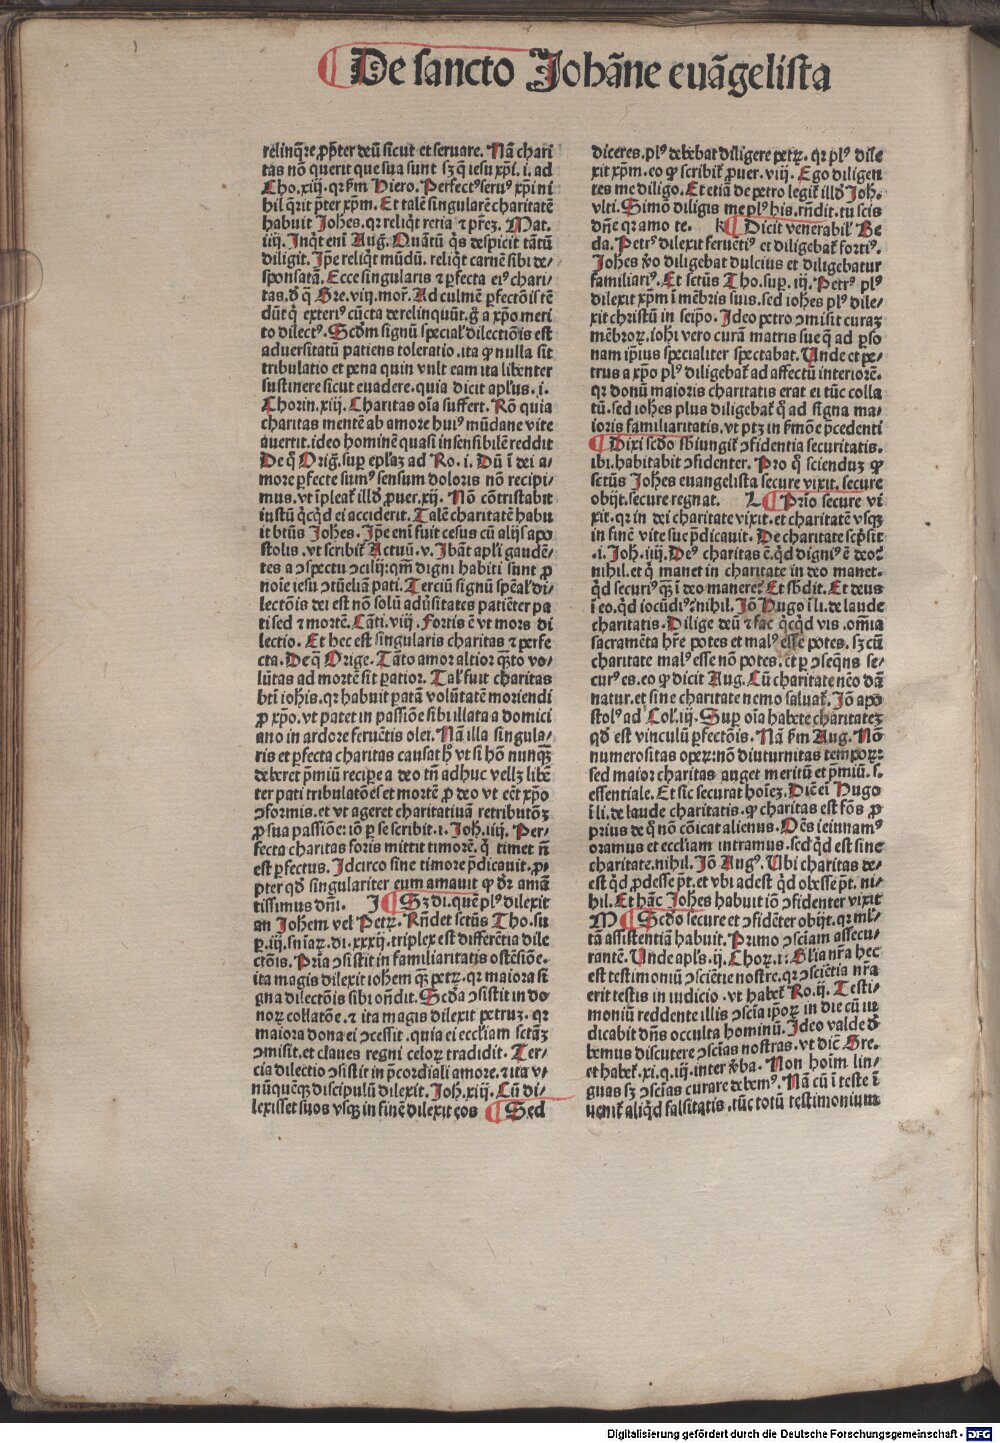 De sancto Johāne euāgelista
relinq̄re ꝓpter deū sicut et seruare. Nā chari
tas nō querit que sua sunt sꝫ q̄ iesu xp̄i. i. ad
Cho. xiij. qr ẜm Hiero. Perfectꝰ seruꝰ xp̄i ni
hil q̄rit p̄ter xp̄m. Et talē singularē charitatē
habuit Johes. qr reliq̄t retia ⁊ pr̄eꝫ. Mat.
iiij. Inq̄t eni Aug. Quātū q̄s despicit tātū
diligit. Ip̄e reliq̄t mūdū. reliq̄t carnē sibi de
sponsatā. Ecce singularis ⁊ ꝑfecta eiꝰ chari
tas. d̄ q̄ Gre. viij. mor̄. Ad culmē ꝑfectōis tē
dūt q̄ exteriꝰ cūcta derelinquūt. ḡ a xp̄o meri
to dilectꝰ. Scd̄m signū special̄ dilectiōis est
aduersitatū patiens toleratio. ita ꝙ nulla sit
tribulatio et pena quin vult eam ita libenter
sustinere sicut euadere. quia dicit apl̄us. i.
Chorin. xiij. Charitas oīa suffert. Rō quia
charitas mentē ab amore huiꝰ mūdane vite
auertit. ideo hominē quasi insensibilē reddit
De q̄ Oriḡ. suꝑ epl̄aꝫ ad Ro. i. Dū ī dei a
more perfecte sumꝰ sensum doloris nō recipi
mus. vt īpleat̄ illd̄ ꝓuer. xij. Nō cōtristabit
iustū q̄cq̄d ei acciderit. Talē charitatē habu
it btūs Johes. Ip̄e enī fuit cesus cū alijs apo
stolis. vt scribit̄ Actuū. v. Ibāt apl̄i gaudē
tes a ↄspectu ↄcilij: qm̄ digni habiti sunt ꝓ
noīe iesu ↄtūeliā pati. Terciū signū spēal̄ di
lectōis dei est nō solū adūsitates patiēter pa
ti sed ⁊ mortē. Cāti. viij. Fortis ē vt mors di
lectio. Et hec est singularis charitas ⁊ perfe
cta. De q̄ Orige. Tāto amor altior q̄ꝫto vo
lūtas ad mortē fit ꝑatior. Tal̄ fuit charitas
bti iohis. qr habuit patā volūtatē moriendi
ꝓ xp̄o. vt patet in passiōe sibi illata a domici
ano in ardore feruētis olei. Nā illa singula
ris et ꝑfecta charitas causat hͦ vt si hō nunq̄ꝫ
deberet p̄miū reciꝑe a deo tn̄ adhuc velleꝫ libē
ter pati tribulatōes et mortē ꝓ deo vt eēt xp̄o
ↄformis. et vt ageret charitatiuā retributōꝫ
ꝓ sua passiōe: iō ꝑ se scribit. i. Joh. iiij. Per
fecta charitas foris mittit timorē. q̄ timet nō
est ꝑfectus. Idcirco sine timore p̄dicauit. ꝓ
pter qd̄ singulariter eum amauit ꝙ dr̄ amā
tissimus dn̄i. J Sꝫ di. quē plꝰ dilexit
an Johem vel Petꝝ. Rn̄det sctūs Tho. su
ꝑ. iij. sn̄iaꝝ. di. xxxij. triplex est differētia dile
ctōis. Prīa ↄsistit in familiaritatis ostēsiōe.
ita magis dilexit iohem q̄ꝫ petꝝ. qr maiora si
gna dilectōis sibi on̄dit. Scd̄a ↄsistit in do
noꝝ collatōe. ⁊ ita magis dilexit petruꝫ. qr
maiora dona ei ↄcessit. quia ei eccl̄iam sctāꝫ
ↄmisit. et claues regni celoꝝ tradidit. Ter
cia dilectio ↄsistit in p̄cordiali amore. ⁊ ita v
nūquēq̄ꝫ discipulū dilexit. Joh. xiij. Cū di
lexisset suos vsq̄ꝫ in finē dilexit eos Sed
diceres. plꝰ debebat diligere petꝝ. qr plꝰ dile
xit xp̄m. eo ꝙ scribit̄ ꝓuer. viij. Ego diligen
tes me diligo. Et etiā de petro legit̄ illd̄ Joh.
vlti. Simō diligis me plꝰ his. rn̄dit. tu scis
dn̄e qr amo te. K Dicit venerabil̄ Be
da. Petrꝰ dilexit feruētiꝰ et diligebat̄ fortiꝰ.
Johes v̄o diligebat dulcius et diligebatur
familiariꝰ. Et sctūs Tho. suꝑ. iij. Petrꝰ plꝰ
dilexit xp̄m ī mēbris suis. sed iohes plꝰ dile
xit christū in seip̄o. Ideo petro ↄmisit curaꝫ
mēbroꝝ. iohi vero curā matris sue q̄ ad ꝑso
nam ip̄ius specialiter spectabat. Unde et pe
trus a xp̄o plꝰ diligebat̄ ad affectū interiorē.
qr donū maioris charitatis erat ei tūc colla
tū. sed iohes plus diligebat̄ q̄ ad signa ma
ioris familiaritatis. vt ptꝫ in ẜmōe p̄cedenti
Dixi scd̄o sb̄iungit̄ ↄfidentia securitatis.
ibi. habitabit ↄfidenter. Pro q̄ sciendum ꝙ
sctūs Johes euangelista secure vixit. secure
obijt. secure regnat. L Prīo secure vi
xit. qr in dei charitate vixit. et charitatē vsq̄ꝫ
in finē vite sue p̄dicauit. De charitate scp̄sit
. i. Joh. iiij. Deꝰ charitas ē. q̄d digniꝰ ē deo:
nihil. et q̄ manet in charitate in deo manet.
q̄d securiꝰ q̄ꝫ ī deo manere: Et sb̄dit. Et deus
ī eo. q̄d iocūdiꝰ: nihil. Iō Hugo ī li. de laude
charitatis. Dilige deū ⁊ fac q̄cq̄d vis. om̄ia
sacramēta hr̄e potes et malꝰ esse potes. sꝫ cū
charitate malꝰ esse nō potes. et ꝑ ↄseq̄ns se
curꝰ es. eo ꝙ dicit Aug. Cū charitate nēo dā
natur. et sine charitate nemo saluat̄. Iō apo
stolꝰ ad Col̄. iij. Suꝑ oīa habete charitateꝫ
qd̄ est vinculū ꝑfectōis. Nā ẜm Aug. Nō
numerositas opeꝝ: nō diuturnitas tempoꝝ:
sed maior charitas auget meritū et p̄miū. s.
essentiale. Et sic securat hoīeꝫ. Dic̄ ei Hugo
ī li. de laude charitatis. ꝙ charitas est fōs ꝓ
prius de q̄ nō cōicat alienus. Oēs ieiunamꝰ
oramus et eccl̄iam intramus. sed q̄d est sine
charitate. nihil. Iō Augꝰ. Ubi charitas de
est q̄d ꝓdesse p̄t. et vbi adest q̄d obesse p̄t. ni
hil. Et hāc Johes habuit iō ↄfidenter vixit
M Scd̄o secure et ↄfidēter obijt. qr ml̄
tā assistentiā habuit. Primo ↄsciam assecu
rantē. Unde apl̄s. ij. Choꝝ. i: Gl̄ia nr̄a hec
est testimoniū ↄsciētie nostre. qr ↄsciētia nr̄a
erit testis in iudicio. vt habet̄ Ro. ij. Testi
moniū reddente illis ↄscia ip̄oꝝ in die cū iu
dicabit dn̄s occulta hominū. Ideo valde d̄
bemus discutere ↄscias nostras. vt dic̄ Gre.
et habet̄. xi. q. iij. inter v̄ba. Non hoīm lin
guas sꝫ ↄscias curare debemꝰ. Nā cū ī teste ī
uenit̄ aliq̄d falsitatis. tūc totū testimonium
Digitalisierung gefördert durch die Deutsche Forschungsgemeinschaft - DFG